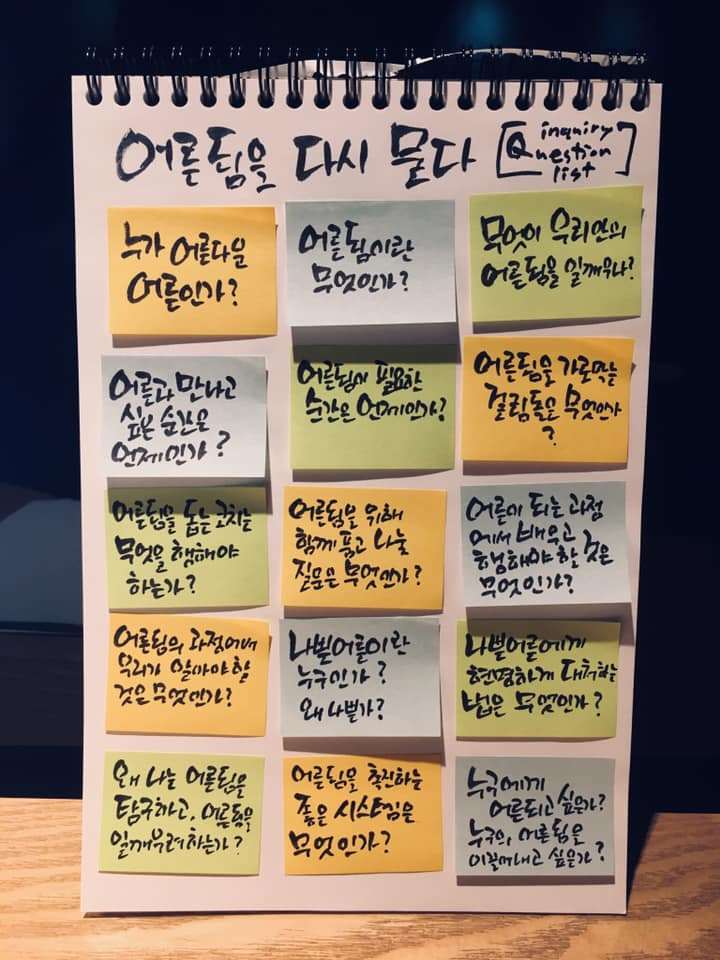 어른됨을 다시 묻다 [inquiry Question list]
누가 어른다운
어른인가?
어른됨이란
무엇인가?
무엇이 우리안의
어른됨을 일깨우나?
어른과 만나고
싶은 순간은
언제인가?
어른됨이 필요한
순간은 언제인가?
어른됨을 가로막는
걸림돌은 무엇인가
?
어른됨을 돕는 코치는
무엇을 행해야
하는가?
어른됨을 위해
함께 품고 나눌
질문은 무엇인가?
어른이 되는 과정
에서 배우고
행해야 할 것은
무엇인가?
어른됨의 과정에서
우리가 알아야 할
것은 무엇인가?
나쁠어른이란
누구인가?
왜 나쁠가?
나쁠어른에게
현명하게 대처하는
법은 무엇인가?
왜 나는 어른됨을
탐구하고, 어른됨을
일깨우려하는가?
어른됨을 촉진하는
좋은 시스템은
무엇인가?
누구에게
어른되고 싶은가?
누구의 어른됨을
이끌어내고 싶은가?